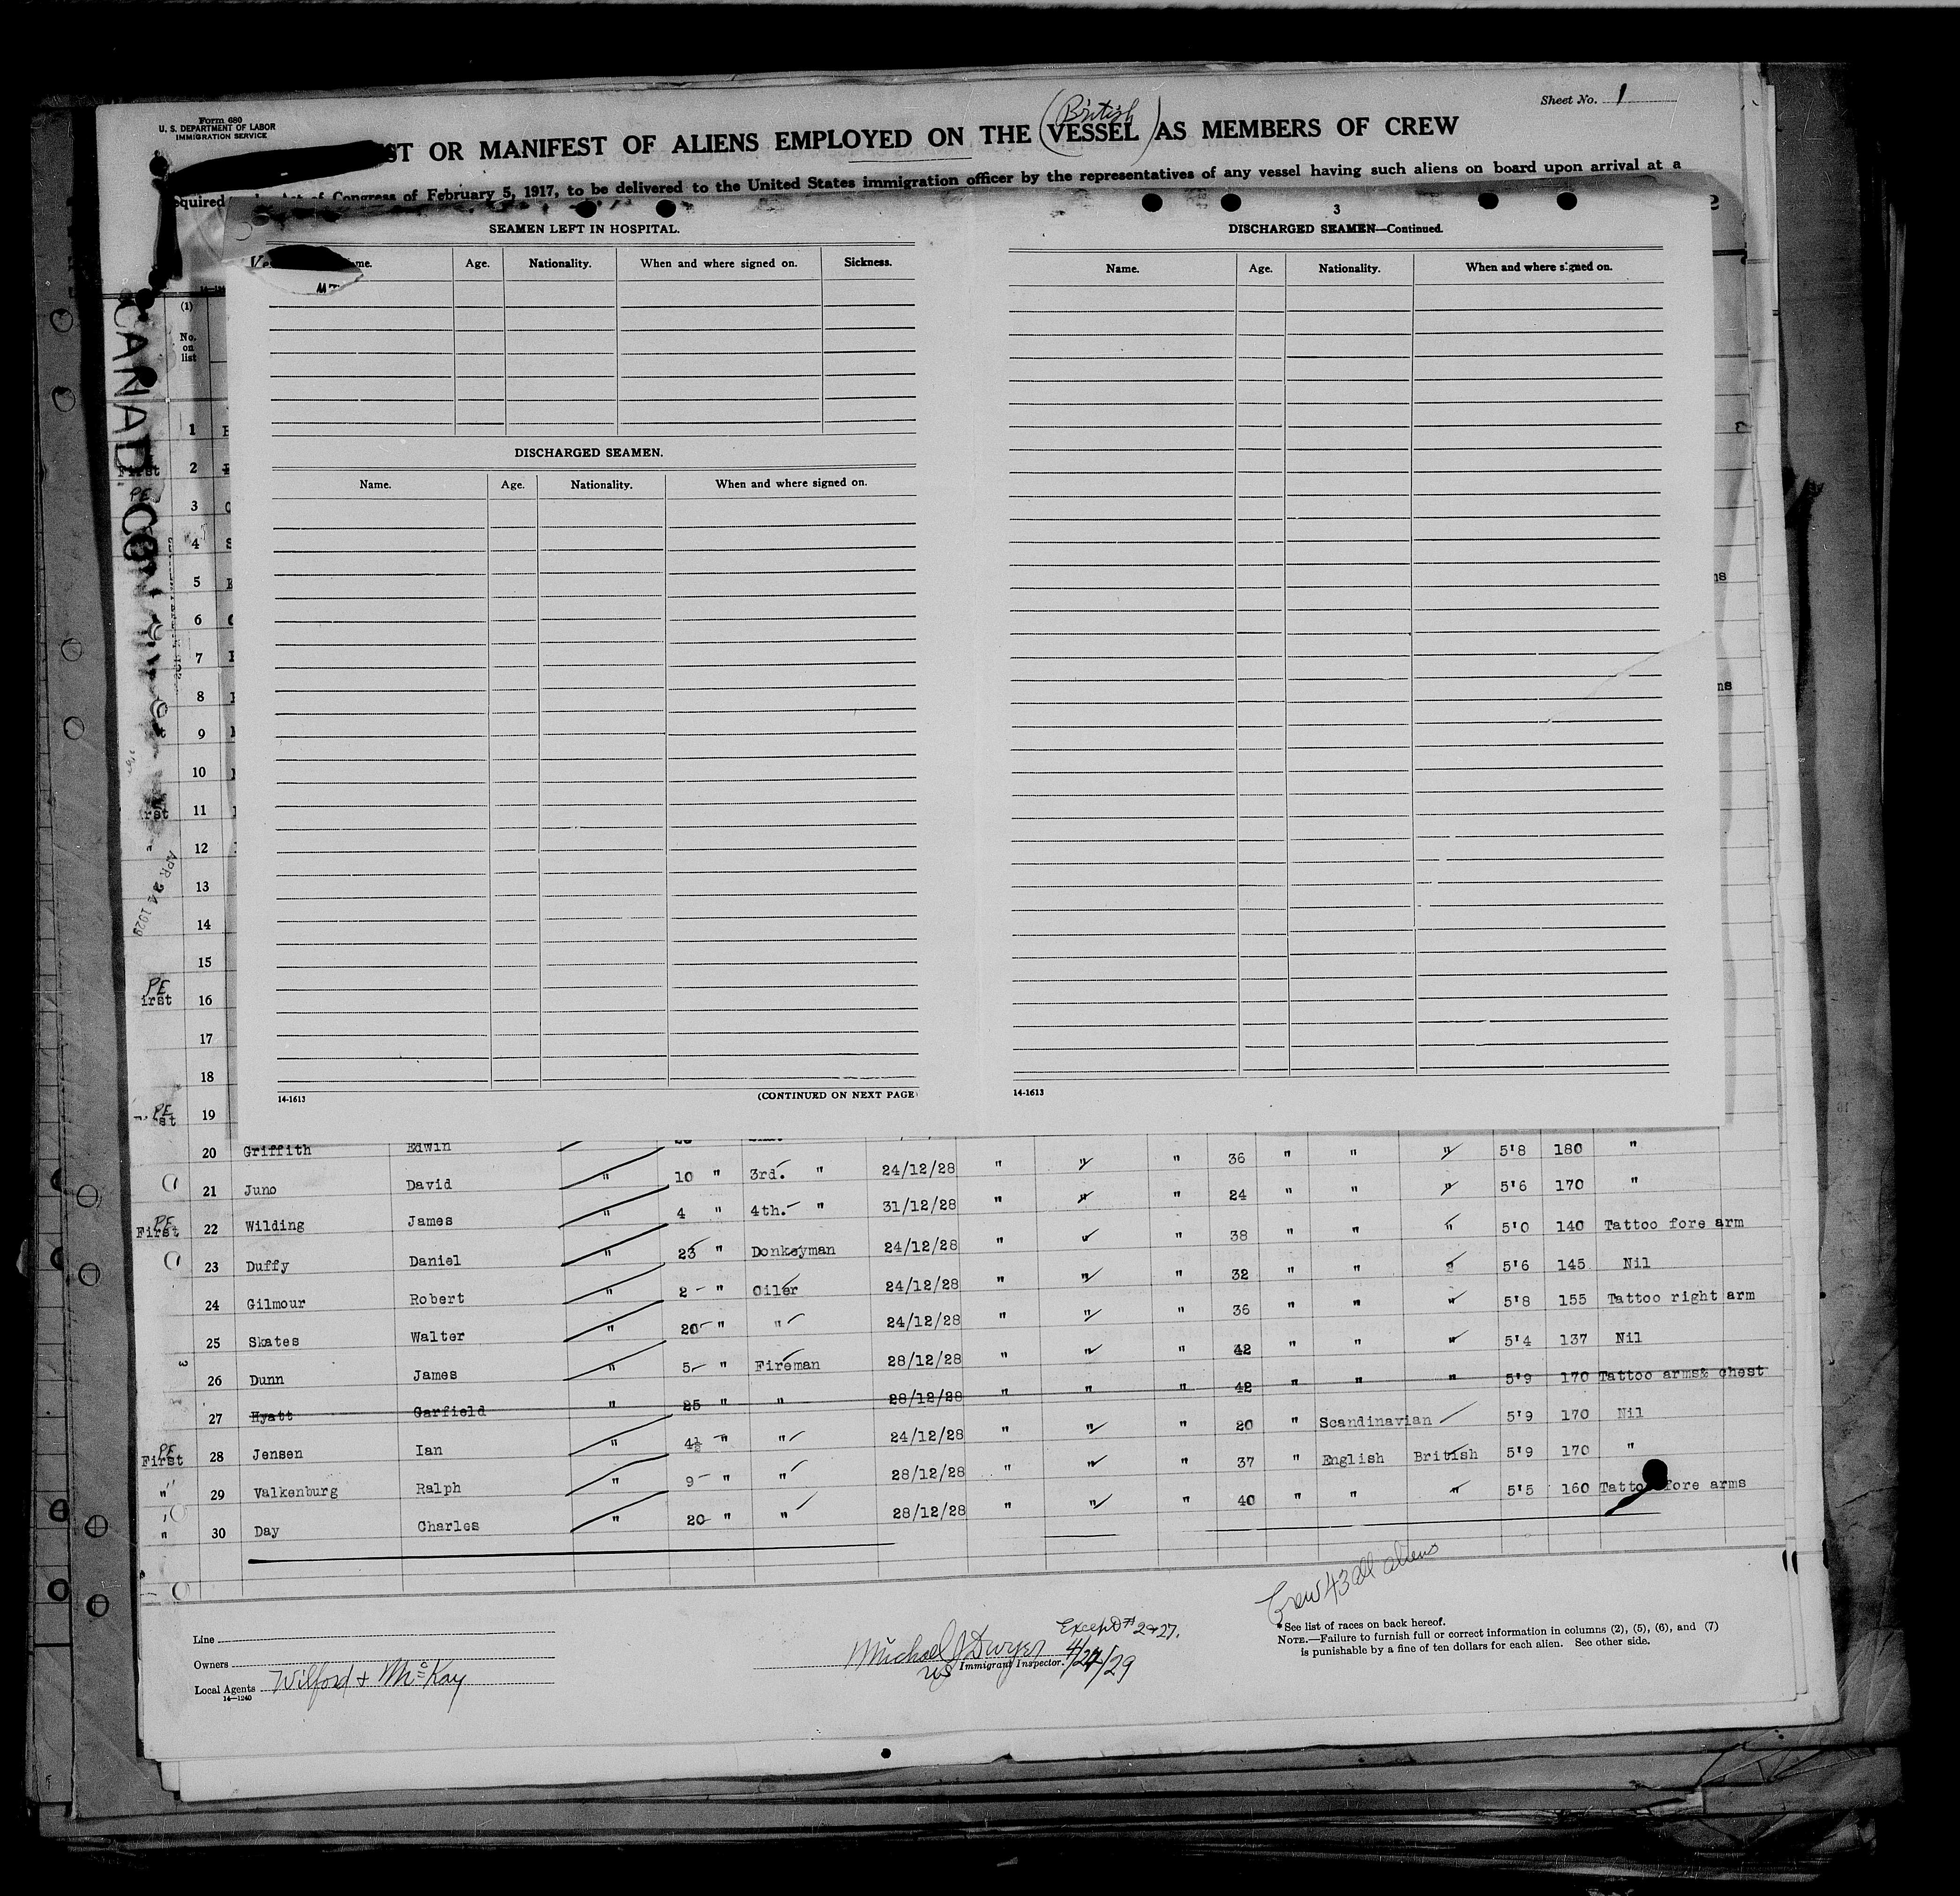 Form 680
U. S. DEPARTMENT OF LABOR
IMMIGRATION SERVICE
Sheet No. 1
(British)
ST OR MANIFEST OF ALIENS EMPLOYED ON THE VESSEL AS MEMBERS OF CREW
equired Act of Congress of February 5, 1917, to be delivered to the United States immigration officer by the representatives of any vessel having such aliens on board upon arrival at a
SEAMEN LEFT IN HOSPITAL.
Age. Nationality. When and where signed on. Sickness.
DISCHARGED SEAMEN.
Name. Age. Nationality. When and where signed on.
14-1613 (CONTINUED ON NEXT PAGE
3
DISCHARGED SEAMEN—Continued.
Name. Age. Nationality. When and where signed on.
14-1613
(1)
No. on list
1
First 2
PE 3
4
5
6
7
8
9
10
rst 11
12
13
APR 24 1929
14
15
PE irst 16
17
18
PE st 19
20 Griffith Edwin 36 " " " 5'8 180 "
21 Juno David " 10 " 3rd. " 24/12/28 " " " 24 " " " 5'6 170 "
PE First 22 Wilding James " 4 " 4th. " 31/12/28 " " " 38 " " " 5'0 140 Tattoo fore arm
23 Duffy Daniel " 23 " Donkeyman 24/12/28 " " " 32 " " " 5'6 145 Nil
24 Gilmour Robert " 2 " Oiler 24/12/28 " " " 36 " " " 5'8 155 Tattoo right arm
25 Skates Walter " 20 " " 24/12/28 " " " 42 " " " 5'4 137 Nil
26 Dunn James " 5 " Fireman 28/12/28 " " " 42 " " " 5'9 170 Tattoo arms& chest
27 Hyatt Garfield " 25 " " 28/12/28 " " " 20 " Scandinavian 5'9 170 Nil
PE First 28 Jensen Ian " 4½ " " 24/12/28 " " " 37 " English British 5'9 170 "
" 29 Valkenburg Ralph " 9 " " 28/12/28 " " " 40 " " " 5'5 160 Tattoo fore arms
" 30 Day Charles " 20 " " 28/12/28 " " "
Crew 43 all aliens
Line
Owners
Local Agents Wilford & McKay
14—1240
Except # 2 & 27.
Michael J Dwyer
US Immigrant Inspector. 4/24/29
*See list of races on back hereof.
NOTE.—Failure to furnish full or correct information in columns (2), (5), (6), and (7)
is punishable by a fine of ten dollars for each alien. See other side.